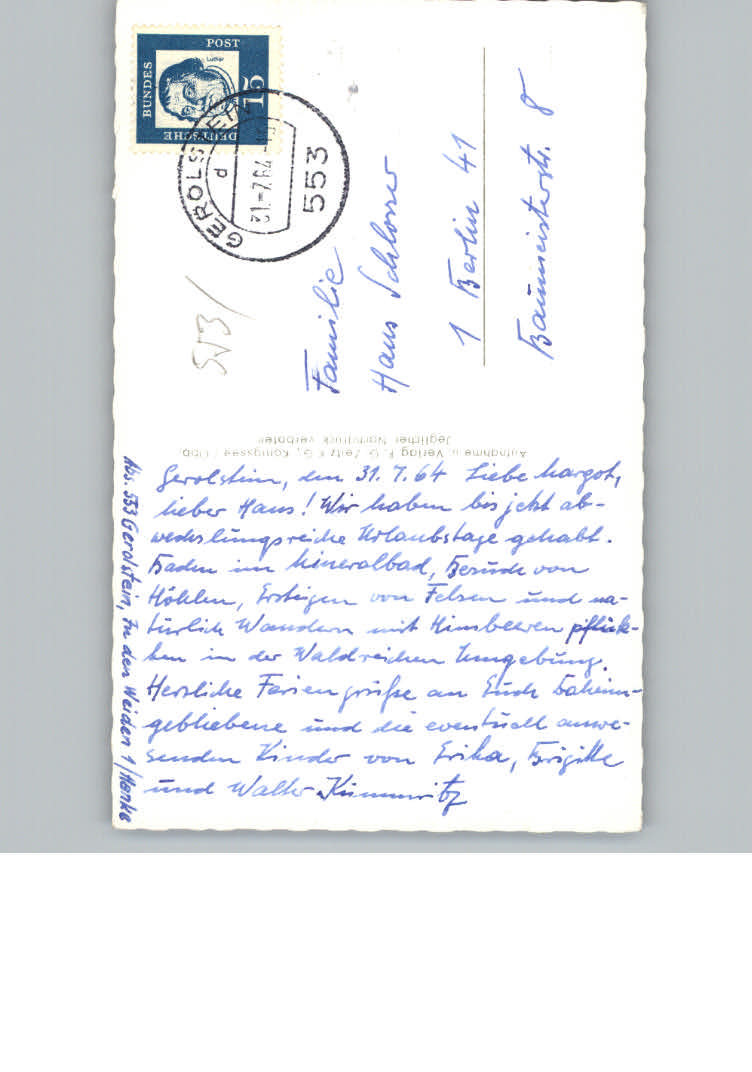 DEUTSCHE
BUNDES
POST
Luther
15
GEROLSTEIN
d
31.-7.64
553
553/
Familie
Hans Schlosser
1 Berlin 41
Baumeisterstr. 8
Aufnahme u. Verlag F. G. Zeitz K G., Königssee / Obb.
Jeglicher Nachdruck verboten
Abs. 553 Gerolstein, In den Weiden 1 / Henke
Gerolstein, den 31.7.64 Liebe Margot,
lieber Hans! Wir haben bis jetzt ab-
wechslungsreiche Urlaubstage gehabt.
Baden im Mineralbad, Besuche von
Höhlen, Ersteigen von Felsen und na-
türlich Wandern mit Himbeeren pflük-
ken in der Waldreichen Umgebung.
Herzliche Feriengrüße an Euch Daheim-
gebliebene und die eventuell anwe-
senden Kinder von Erika, Brigitte
und Walter